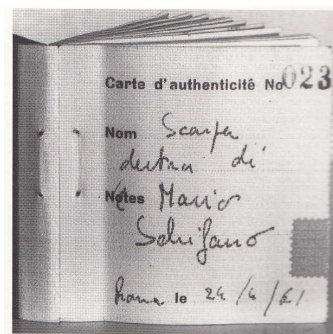 Carte d'authenticité No 023
Nom Scarpa
destra di
Notes Mario
Schifano
Roma le 24/4/61